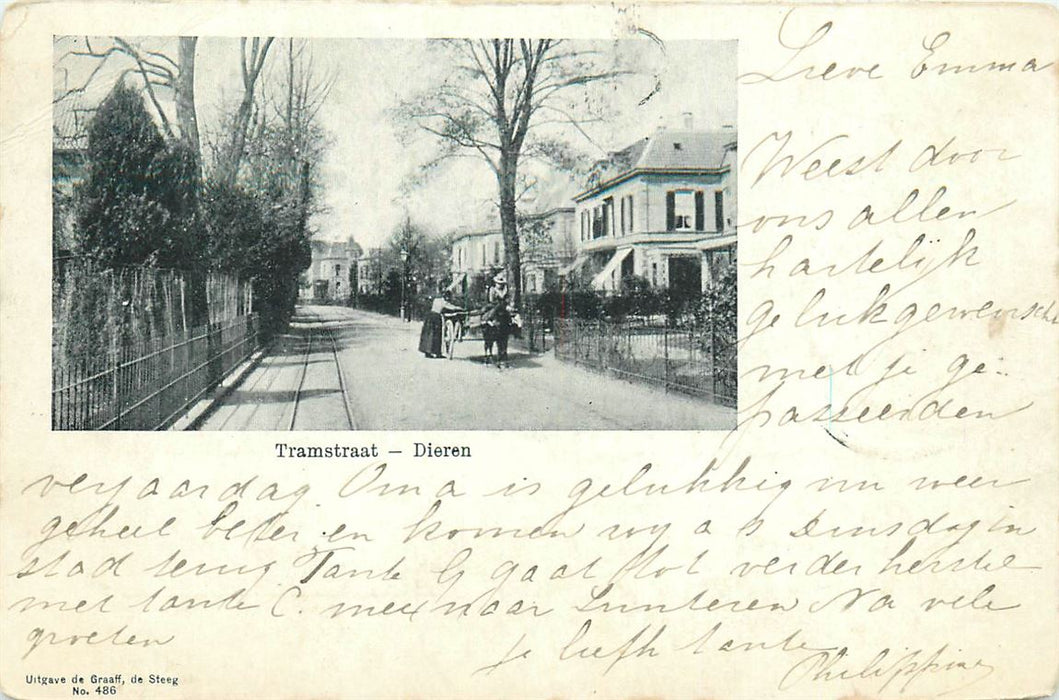 Lieve Emma
Weest door
ons allen
hartelijk
gelukgewenscht
met je ge-
passeerden
Tramstraat — Dieren
verjaardag Oma is gelukkig nu weer
geheel beter en komen wy a s Dinsdag in
stad terug Tante G gaat tot verder herstel
met tante C. mee naar Lunteren Na vele
groeten
je liefh tante
Philippine
Uitgave de Graaff, de Steeg
No. 486